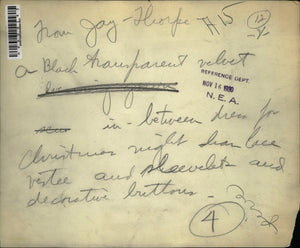 From Jay-Thorpe
A 5
12
a Black transparent velvet
REFERENCE DEPT.
NOV 16 1930
N.E.A.
in-between dress for
Christmas night has lace
vestee and sleevelets and
decorative buttons -
4